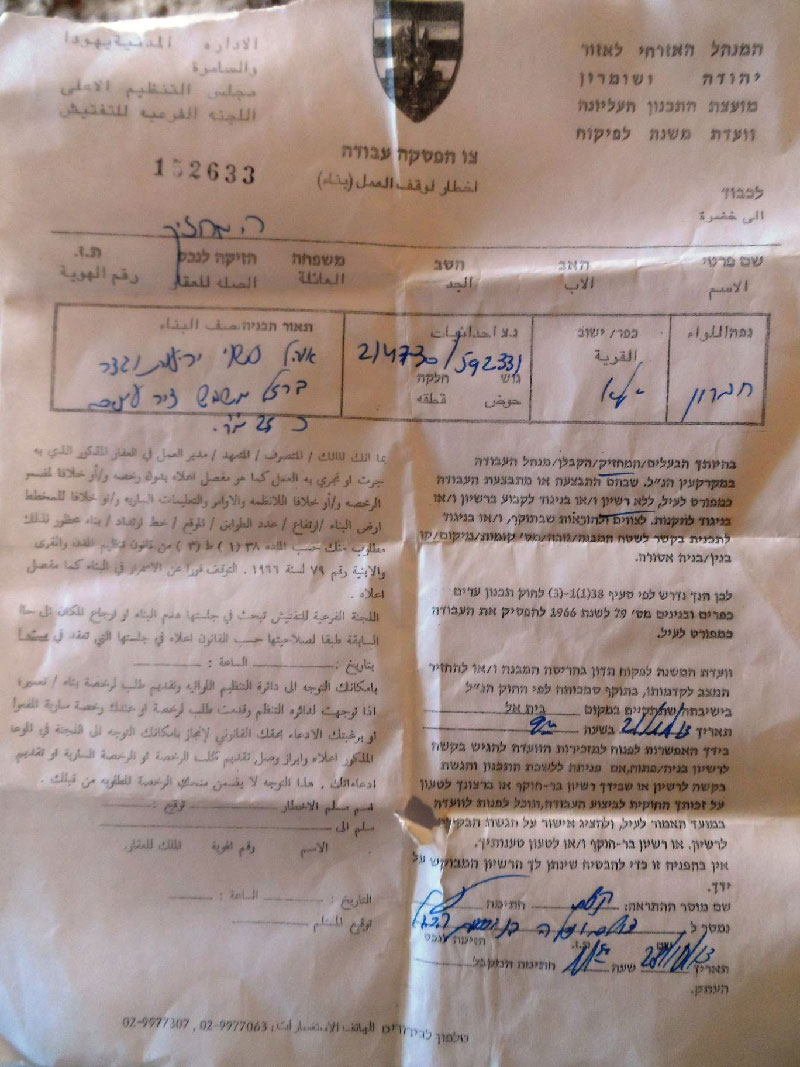 המנהל האזרחי לאזור
יהודה ושומרון
מועצת התכנון העליונה
וועדת משנת לפיקוח
الاداره المدنية يهودا
والسامرة
مجلس التنظيم الاعلى
اللجنه الفرعيه للتفتيش
צו הפסקה עבודה
اخطار لوقف العمل (بناء)
152633
לכבוד
الى حضرة
המחזיק
שם פרטי האב הסב משפחה הזיקה לנכס ת.ז.
الاسم الاب الجد العائلة الصله للعقار رقم الهوية
נפה اللواء
חברון
כפר/ישוב
القرية
יטא
נ.צ احداثيات
214730/592331
גוש חלקה
حوض قطعه
תאור הבניה صف البناء
בהיותך הבעלים/המחזיק/הקבלן/מנהל העבודה
במקרקעין הנ"ל. שבהם התבצעה או מתבצעת העבודה
כמפורט לעיל, ללא רשיון ו/או בניגוד לקבוע ברשיון ו/או
בניגוד לתקנות. לצווים ולהוראות שבתוקף, ו/או בניגוד
לתכנית בקשר לשטח המבנה/גובה/מס' קומות/מיקום/קו
בנין/בניה אסורה.
לכן הנך נדרש לפי סעיף 38(1)-(3) לחוק תכנון ערים
כפרים ובנינים מס' 79 לשנת 1966 להפסיק את העבודה
כמפורט לעיל.
וועדת המשנה לפקוח תדון בהריסת המבנה ו/או להחזיר
המצב לקדמותו, בתוקף סמכותה לפי החוק הנ"ל
בישיבתה שתתקיים במקום בית אל
תאריך בשעה
בידך האפשרות לפנות למזכירות הוועדה להגיש בקשה
לרשיון בניה/פתוח, אם פנית ללשכת התכנון והגשת
בקשה לרשיון או שבידך רשיון בר-תוקף או ברצונך לטעון
על זכותך החוקית לביצוע העבודה, תוכל לפנות לוועדה
במועד האמור לעיל, ולהציג אישור על הגשת הבקשה
לרשיון. או רשיון בר-תוקף ו/או לטעון טענותיך.
אין בהפניה זו כדי להבטיח שינתן לך הרשיון המבוקש על
ידך.
שם מוסר ההתראה: חתימה
נמסר ל
תאריך שעה חתימת המקבל
העתק.
بما انك المالك / المتصرف / المتعهد / مدير العمل في العقار المذكور الذي به
جرت او تجري به العمل كما هو مفصل اعلاه بدون رخصه و/أو خلافا لقسم
الرخصه و/أو خلافا للانظمه والاوامر والتعليمات الساريه و/او خلافا للمخطط
ارض البناء / ارتفاع / عدد الطوابق / الموقع / خط ارتداد / بناء محظور لذلك
مطلوب منك حسب الماده ٣٨ (١) ط (٣) من قانون تنظيم المدن والقرى
والابنية رقم ٧٩ لسنة ١٩٦٦ . التوقف فورا عن الاستمرار في البناء كما مفصل
اعلاه .
اللجنة الفرعية للتفتيش تبحث في جلستها هدم البناء او ارجاع المكان الى حاله
السابقة طبقا لصلاحيتها حسب القانون اعلاه في جلستها التي تعقد في
بتاريخ : الساعة :
بامكانك التوجه الى دائرة التنظيم اللوائيه وتقديم طلب لرخصة بناء /
اذا توجهت لدائره التنظيم وقدمت طلب لرخصة او عندك رخصة سارية المفعول
او برغبتك الادعاء بحقك القانوني لإنجاز بامكانك التوجه الى اللجنة في الموعد
المذكور اعلاه وابراز وصل تقديم طلب الرخصة او الرخصة السارية او تقديم
ادعاءاتك . هذا التوجه لا يضمن منحك الرخصة المطلوبه من قبلك .
اسم مسلم الاخطار توقيع :
سلم الى
الاسم رقم الهوية المالك للعقار
التاريخ : الساعة :
توقيع المستلم
טלפון לבירורים الهاتف الاستفسارات : 02-9977063 , 02-9977307